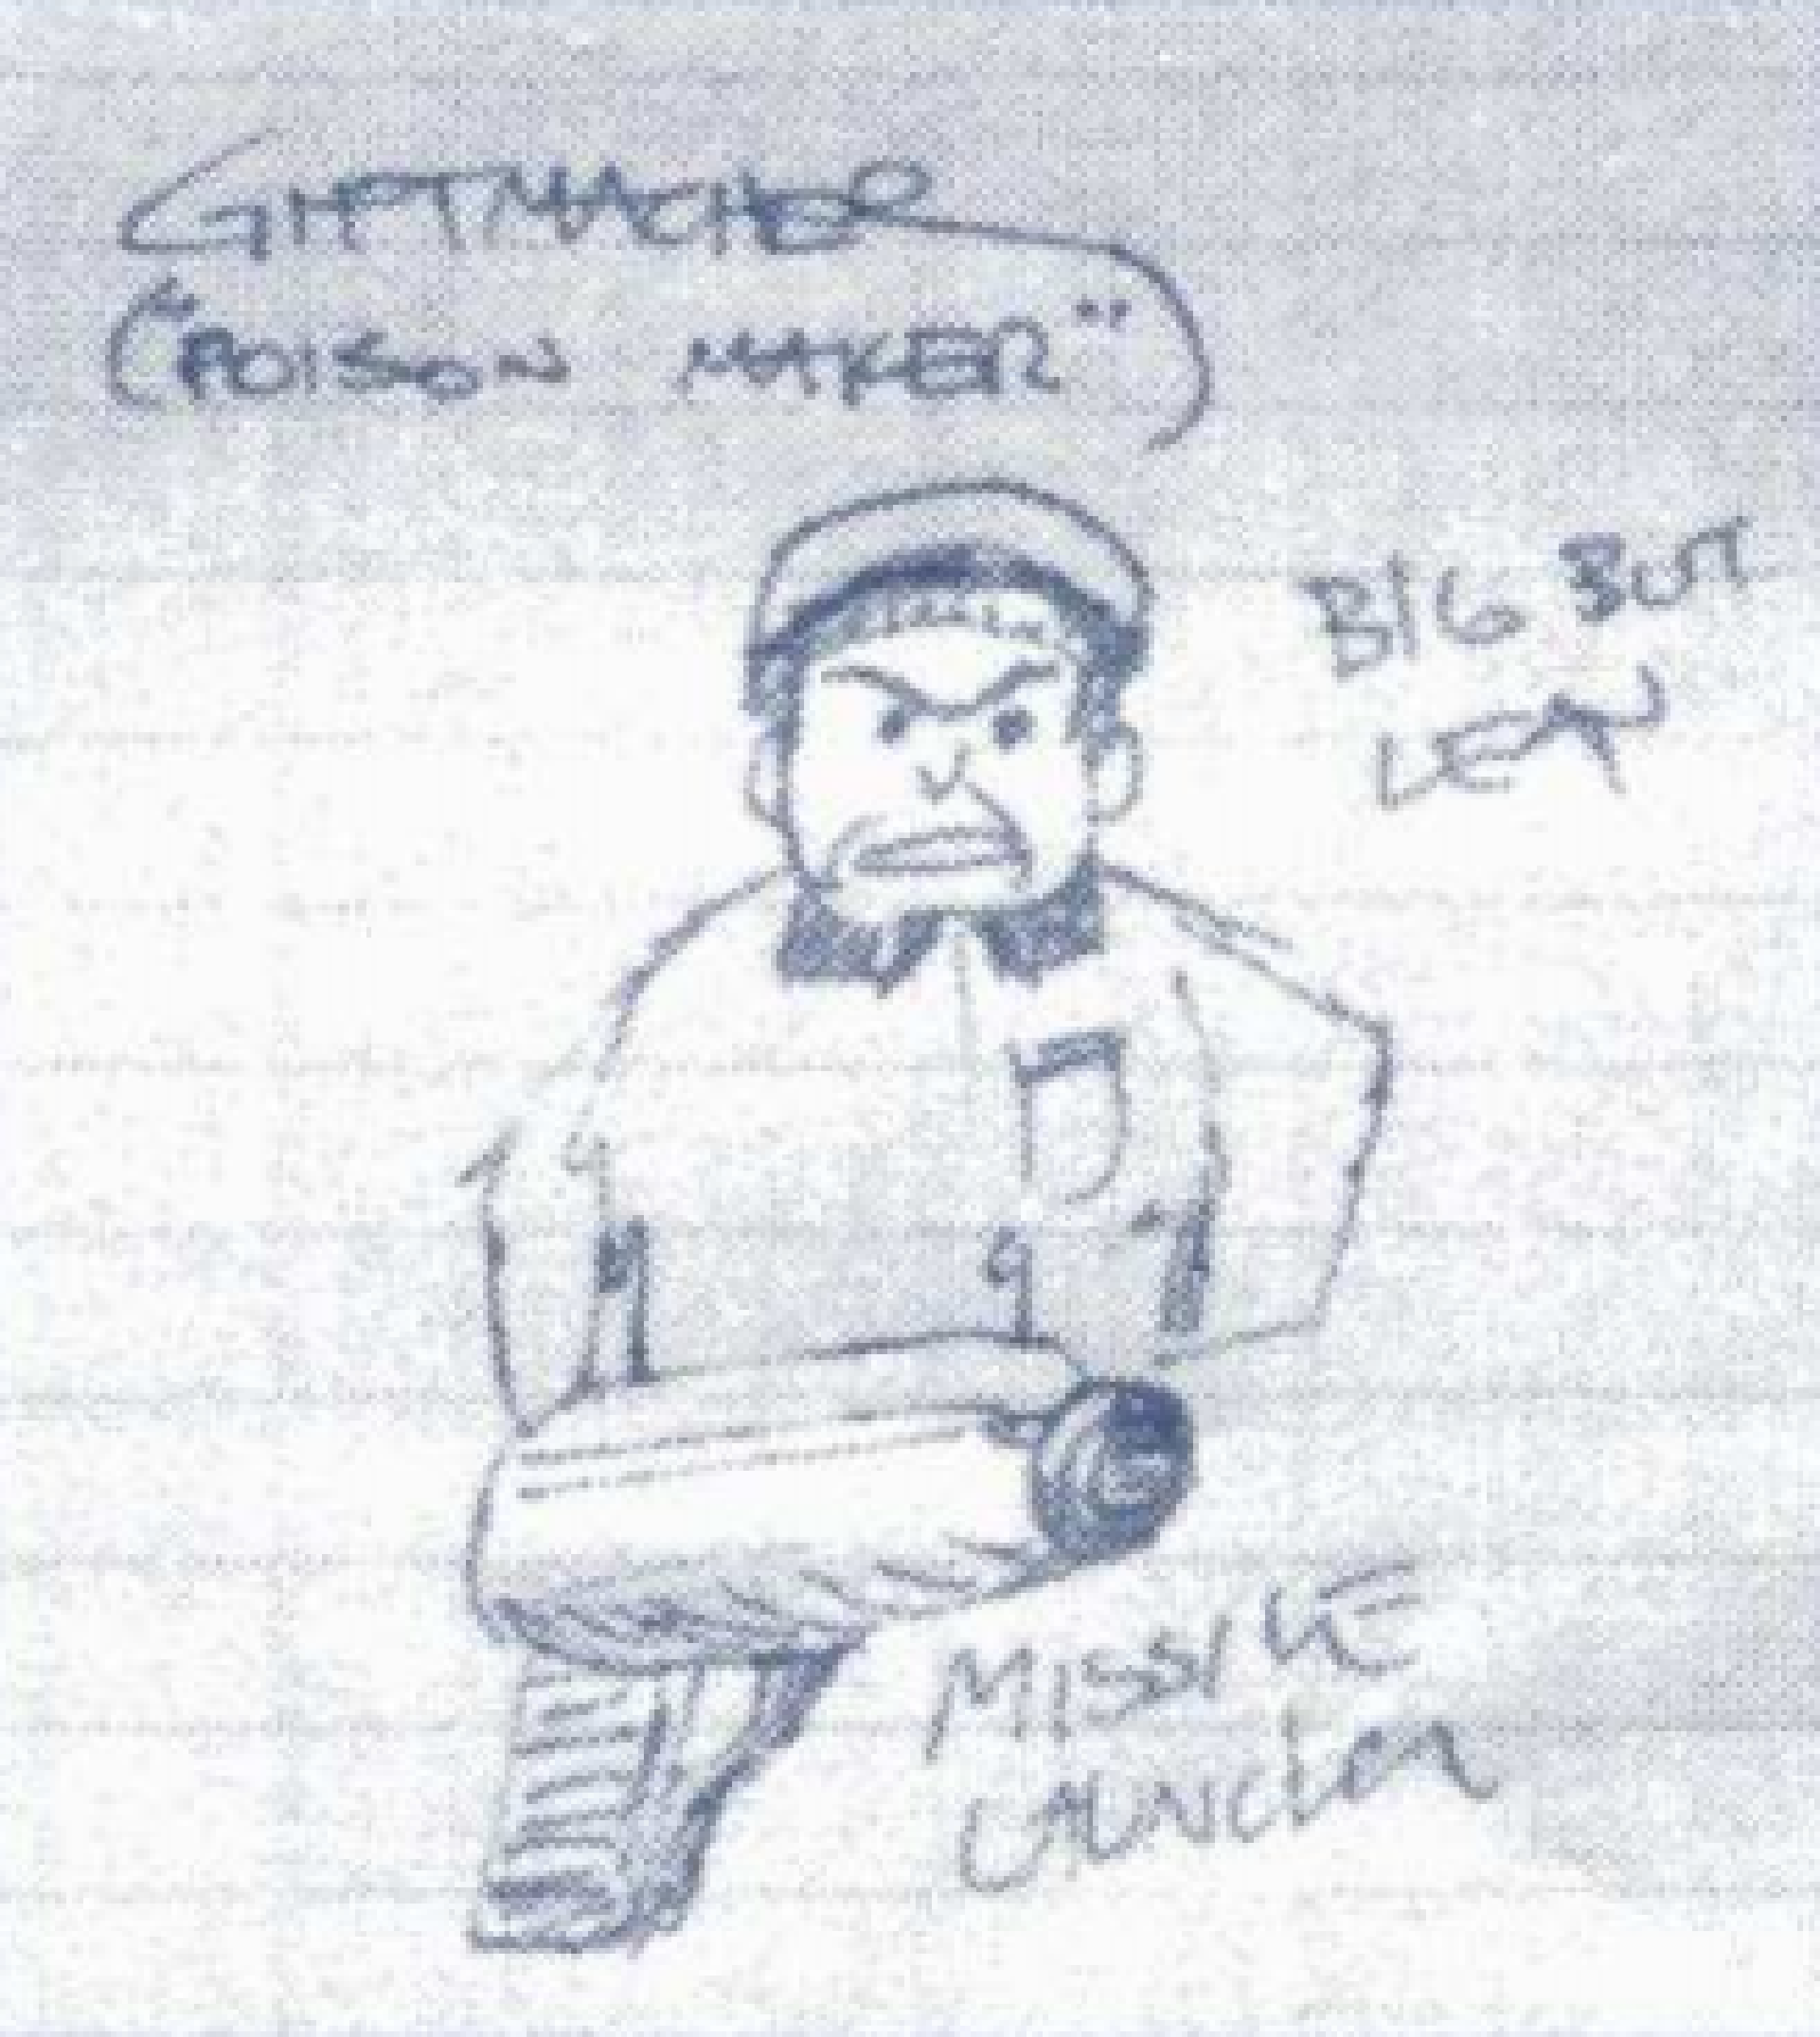 GIFTMACHER
("POISON MAKER")
BIG BUT
LEAN
MISSILE
LAUNCHER